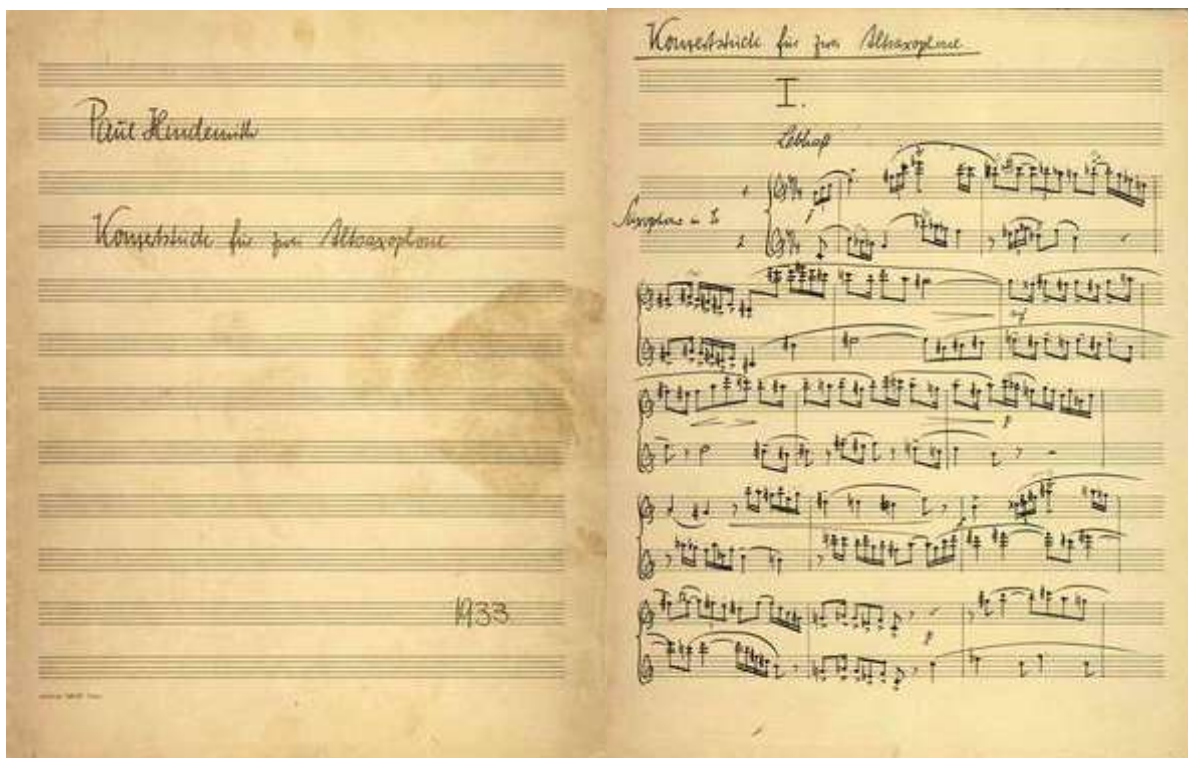 Paul Hindemith
Konzertstück für zwei Altsaxophone
1933
Konzertstück für zwei Altsaxophone
I.
Lebhaft
1
Saxophone in Es
2
f
mf
p
p